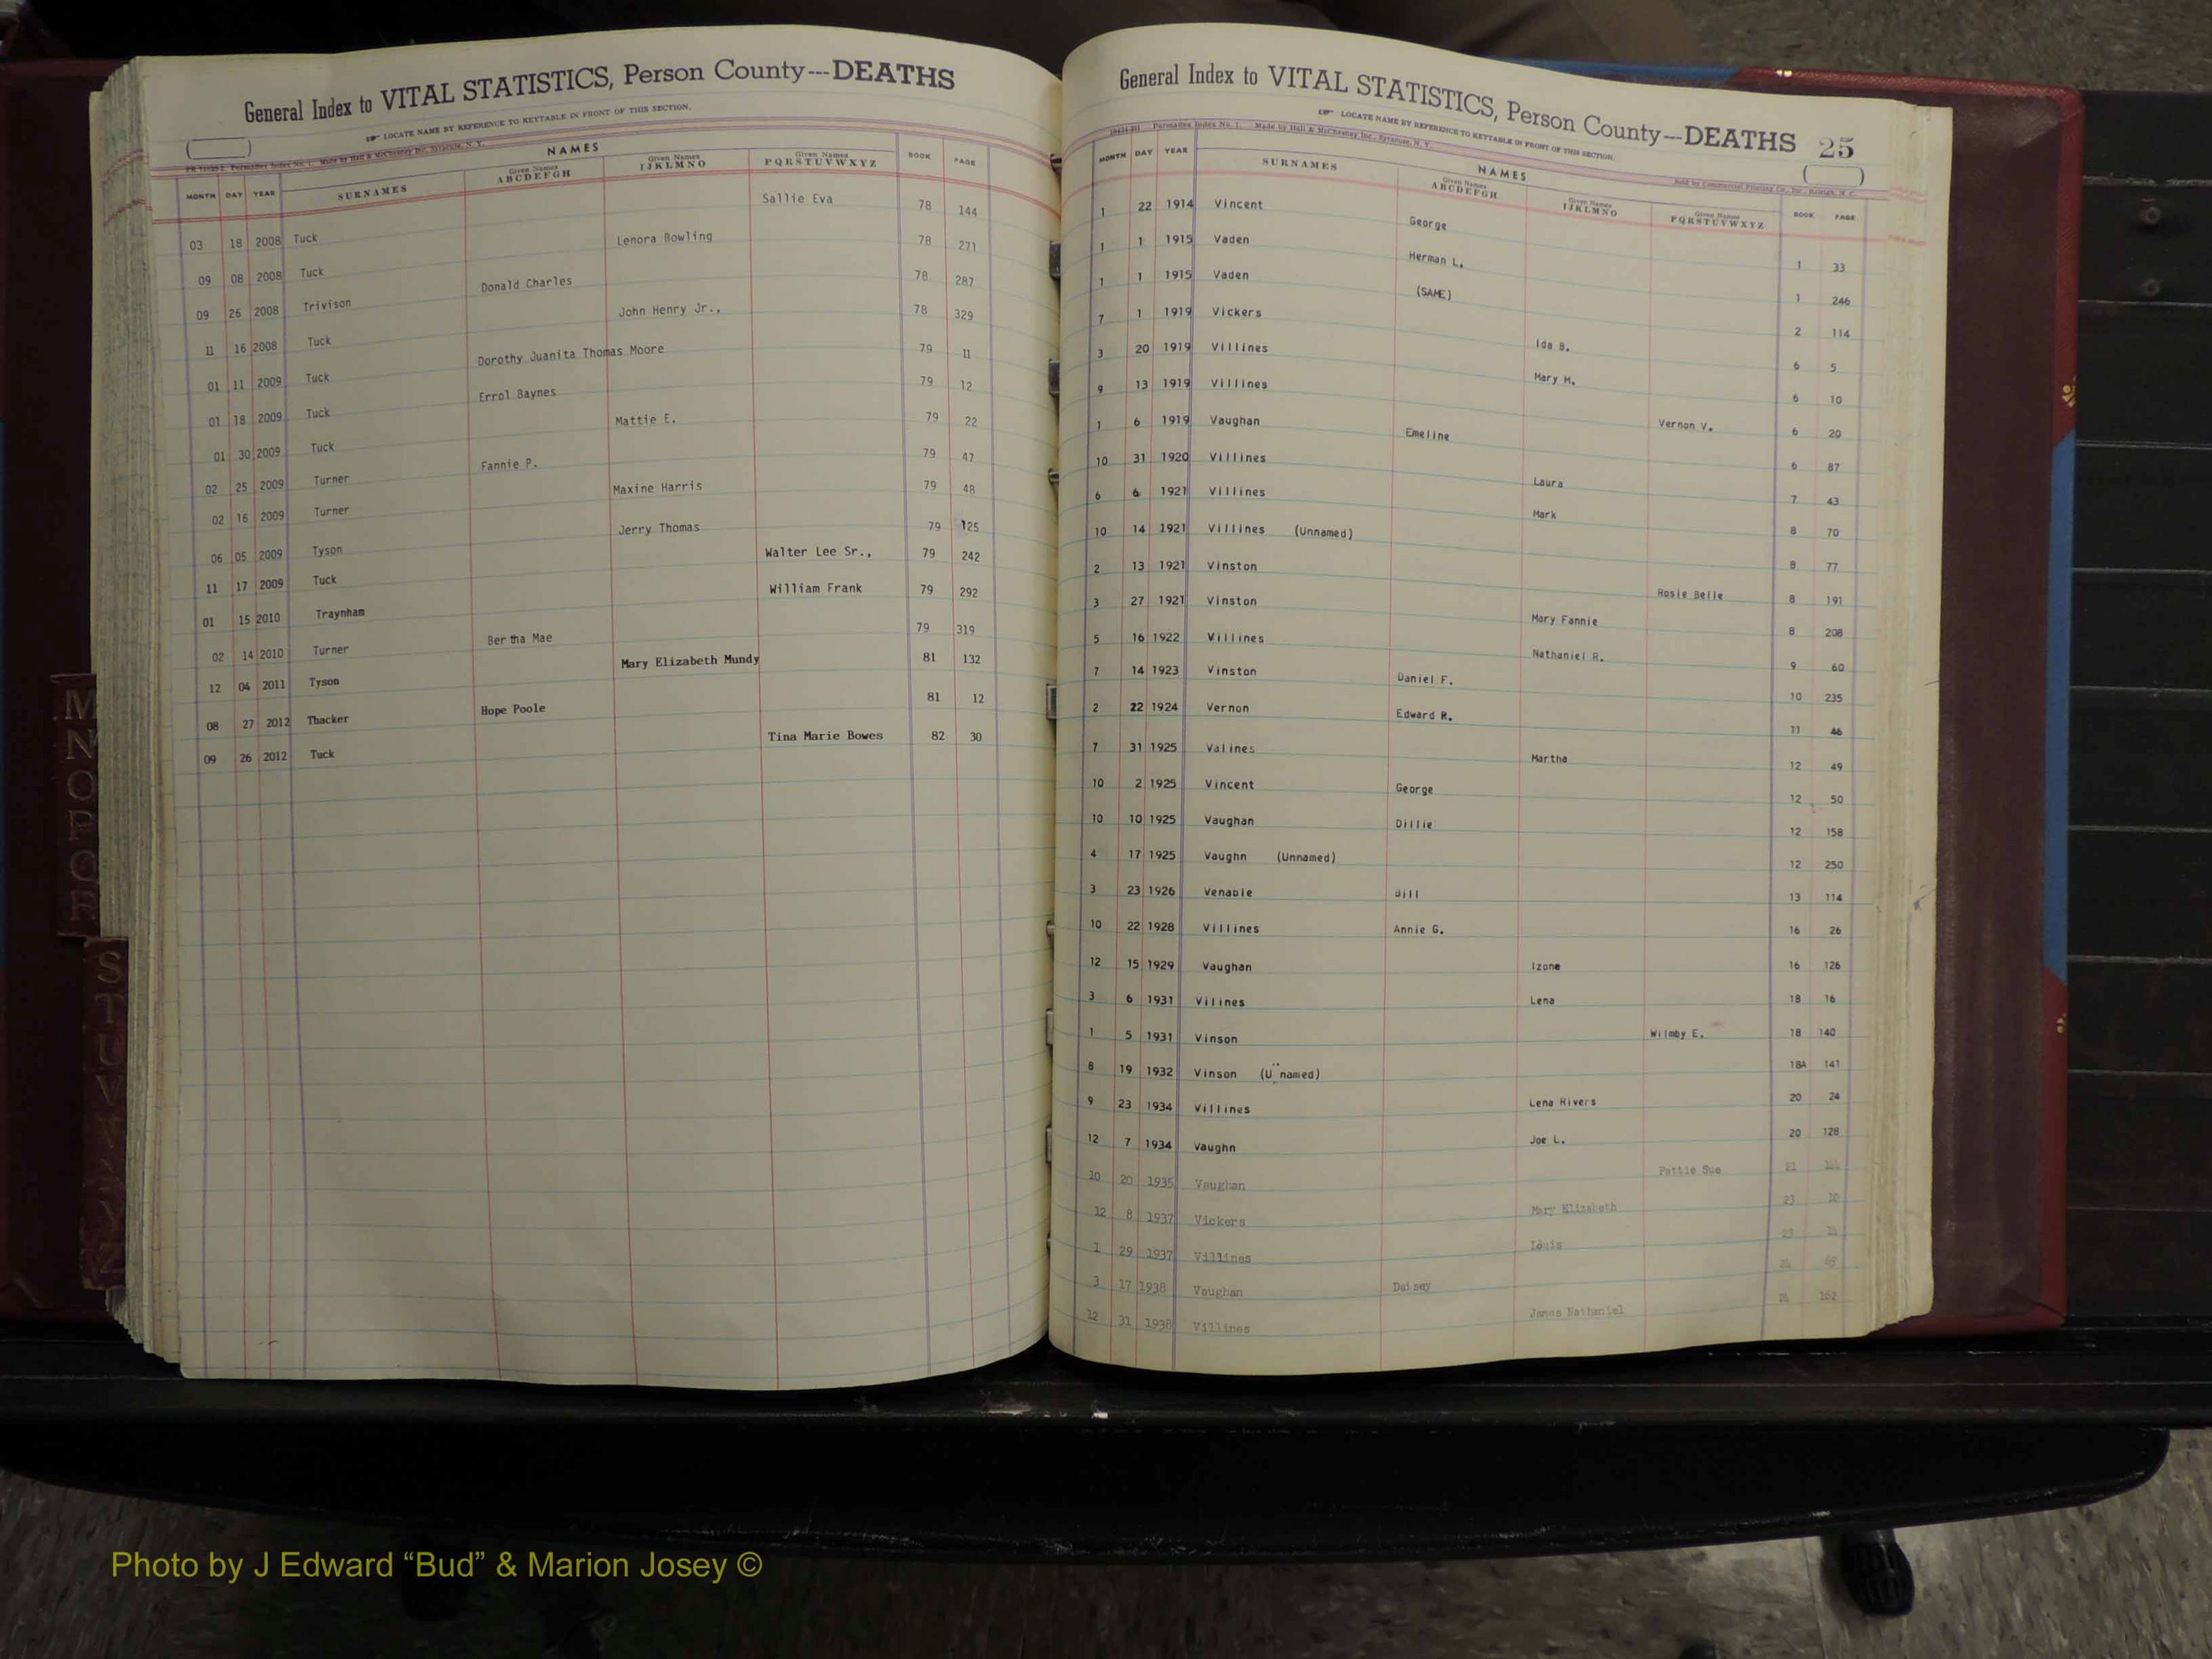 General Index to VITAL STATISTICS, Person County---DEATHS
LOCATE NAME BY REFERENCE TO KEYTABLE IN FRONT OF THIS SECTION.
NAMES
MONTH DAY YEAR SURNAMES Given Names ABCDEFGH Given Names IJKLMNO Given Names PQRSTUVWXYZ BOOK PAGE
03 18 2008 Tuck Sallie Eva 78 144
09 08 2008 Tuck Lenora Bowling 78 271
09 26 2008 Trivison Donald Charles 78 287
11 16 2008 Tuck John Henry Jr., 78 329
01 11 2009 Tuck Dorothy Juanita Thomas Moore 79 11
01 18 2009 Tuck Errol Baynes 79 12
01 30 2009 Tuck Mattie E. 79 22
02 25 2009 Turner Fannie P. 79 47
02 16 2009 Turner Maxine Harris 79 48
06 05 2009 Tyson Jerry Thomas 79 125
11 17 2009 Tuck Walter Lee Sr., 79 242
01 15 2010 Traynham William Frank 79 292
02 14 2010 Turner Bertha Mae 79 319
12 04 2011 Tyson Mary Elizabeth Mundy 81 132
08 27 2012 Thacker Hope Poole 81 12
09 26 2012 Tuck Tina Marie Bowes 82 30
General Index to VITAL STATISTICS, Person County---DEATHS 25
LOCATE NAME BY REFERENCE TO KEYTABLE IN FRONT OF THIS SECTION.
Permadex Index No. 1. Made by Hall & McChesney Inc., Syracuse, N. Y. Sold by Commercial Printing Co., Inc., Raleigh, N. C.
NAMES
MONTH DAY YEAR SURNAMES Given Names ABCDEFGH Given Names IJKLMNO Given Names PQRSTUVWXYZ BOOK PAGE
1 22 1914 Vincent George 1 33
1 1 1915 Vaden Herman L. 1 246
1 1 1915 Vaden (SAME) 2 114
7 1 1919 Vickers Ida B. 6 5
3 20 1919 Villines Mary M. 6 10
9 13 1919 Villines Vernon V. 6 20
1 6 1919 Vaughan Emeline 6 87
10 31 1920 Villines Laura 7 43
6 6 1921 Villines Mark 8 70
10 14 1921 Villines (Unnamed) 8 77
2 13 1921 Vinston Rosie Belle 8 191
3 27 1921 Vinston Mary Fannie 8 208
5 16 1922 Villines Nathaniel R. 9 60
7 14 1923 Vinston Daniel F. 10 235
2 22 1924 Vernon Edward R. 11 46
7 31 1925 Valines Martha 12 49
10 2 1925 Vincent George 12 50
10 10 1925 Vaughan Dillie 12 158
4 17 1925 Vaughn (Unnamed) 12 250
3 23 1926 Venable Bill 13 114
10 22 1928 Villines Annie G. 16 26
12 15 1929 Vaughan Izone 16 126
3 6 1931 Vilines Lena 18 16
1 5 1931 Vinson Wilmby E. 18 140
8 19 1932 Vinson (U"named) 18A 141
9 23 1934 Villines Lena Rivers 20 24
12 7 1934 Vaughn Joe L. 20 128
10 20 1935 Vaughan Pattie Sue
12 8 1937 Vickers Mary Elizabeth 23 10
1 29 1937 Villines Louis 23
3 17 1938 Vaughan Daisey 24
12 31 1938 Villines James Nathaniel 24 162
M
N
O
P
Q
R
S
T
U
V
Photo by J Edward “Bud” & Marion Josey ©